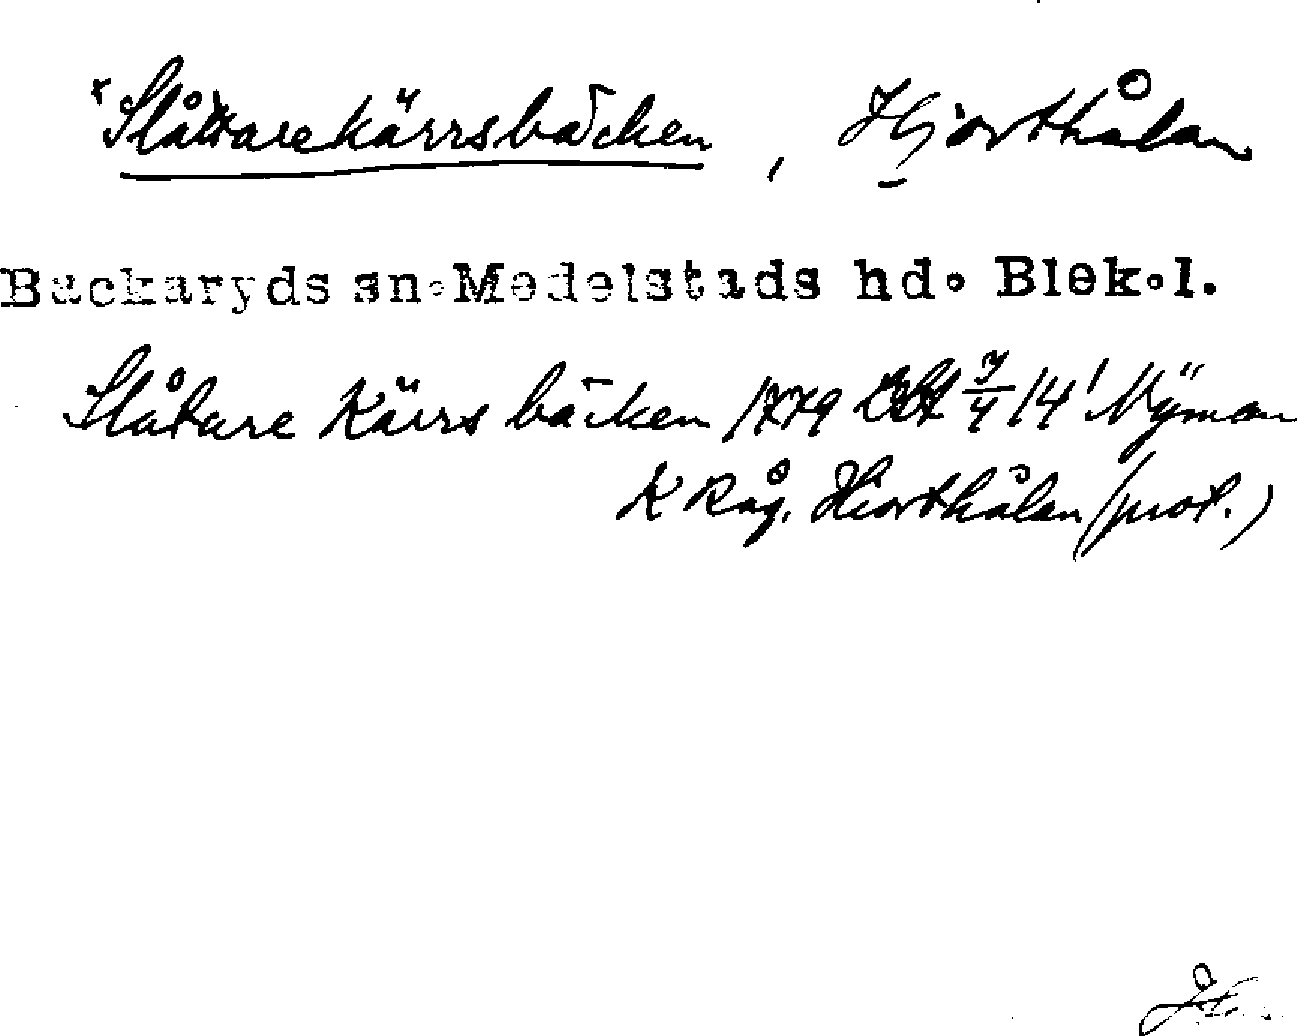 *Slåttarekärrsbäcken, Hjorthålan
Backaryds sn. Medelstads hd. Blek.l.
Slåtare Kärrs bäcken 1779 7/4 14' Nÿman
K Råg. Hiorthålan (prot.)